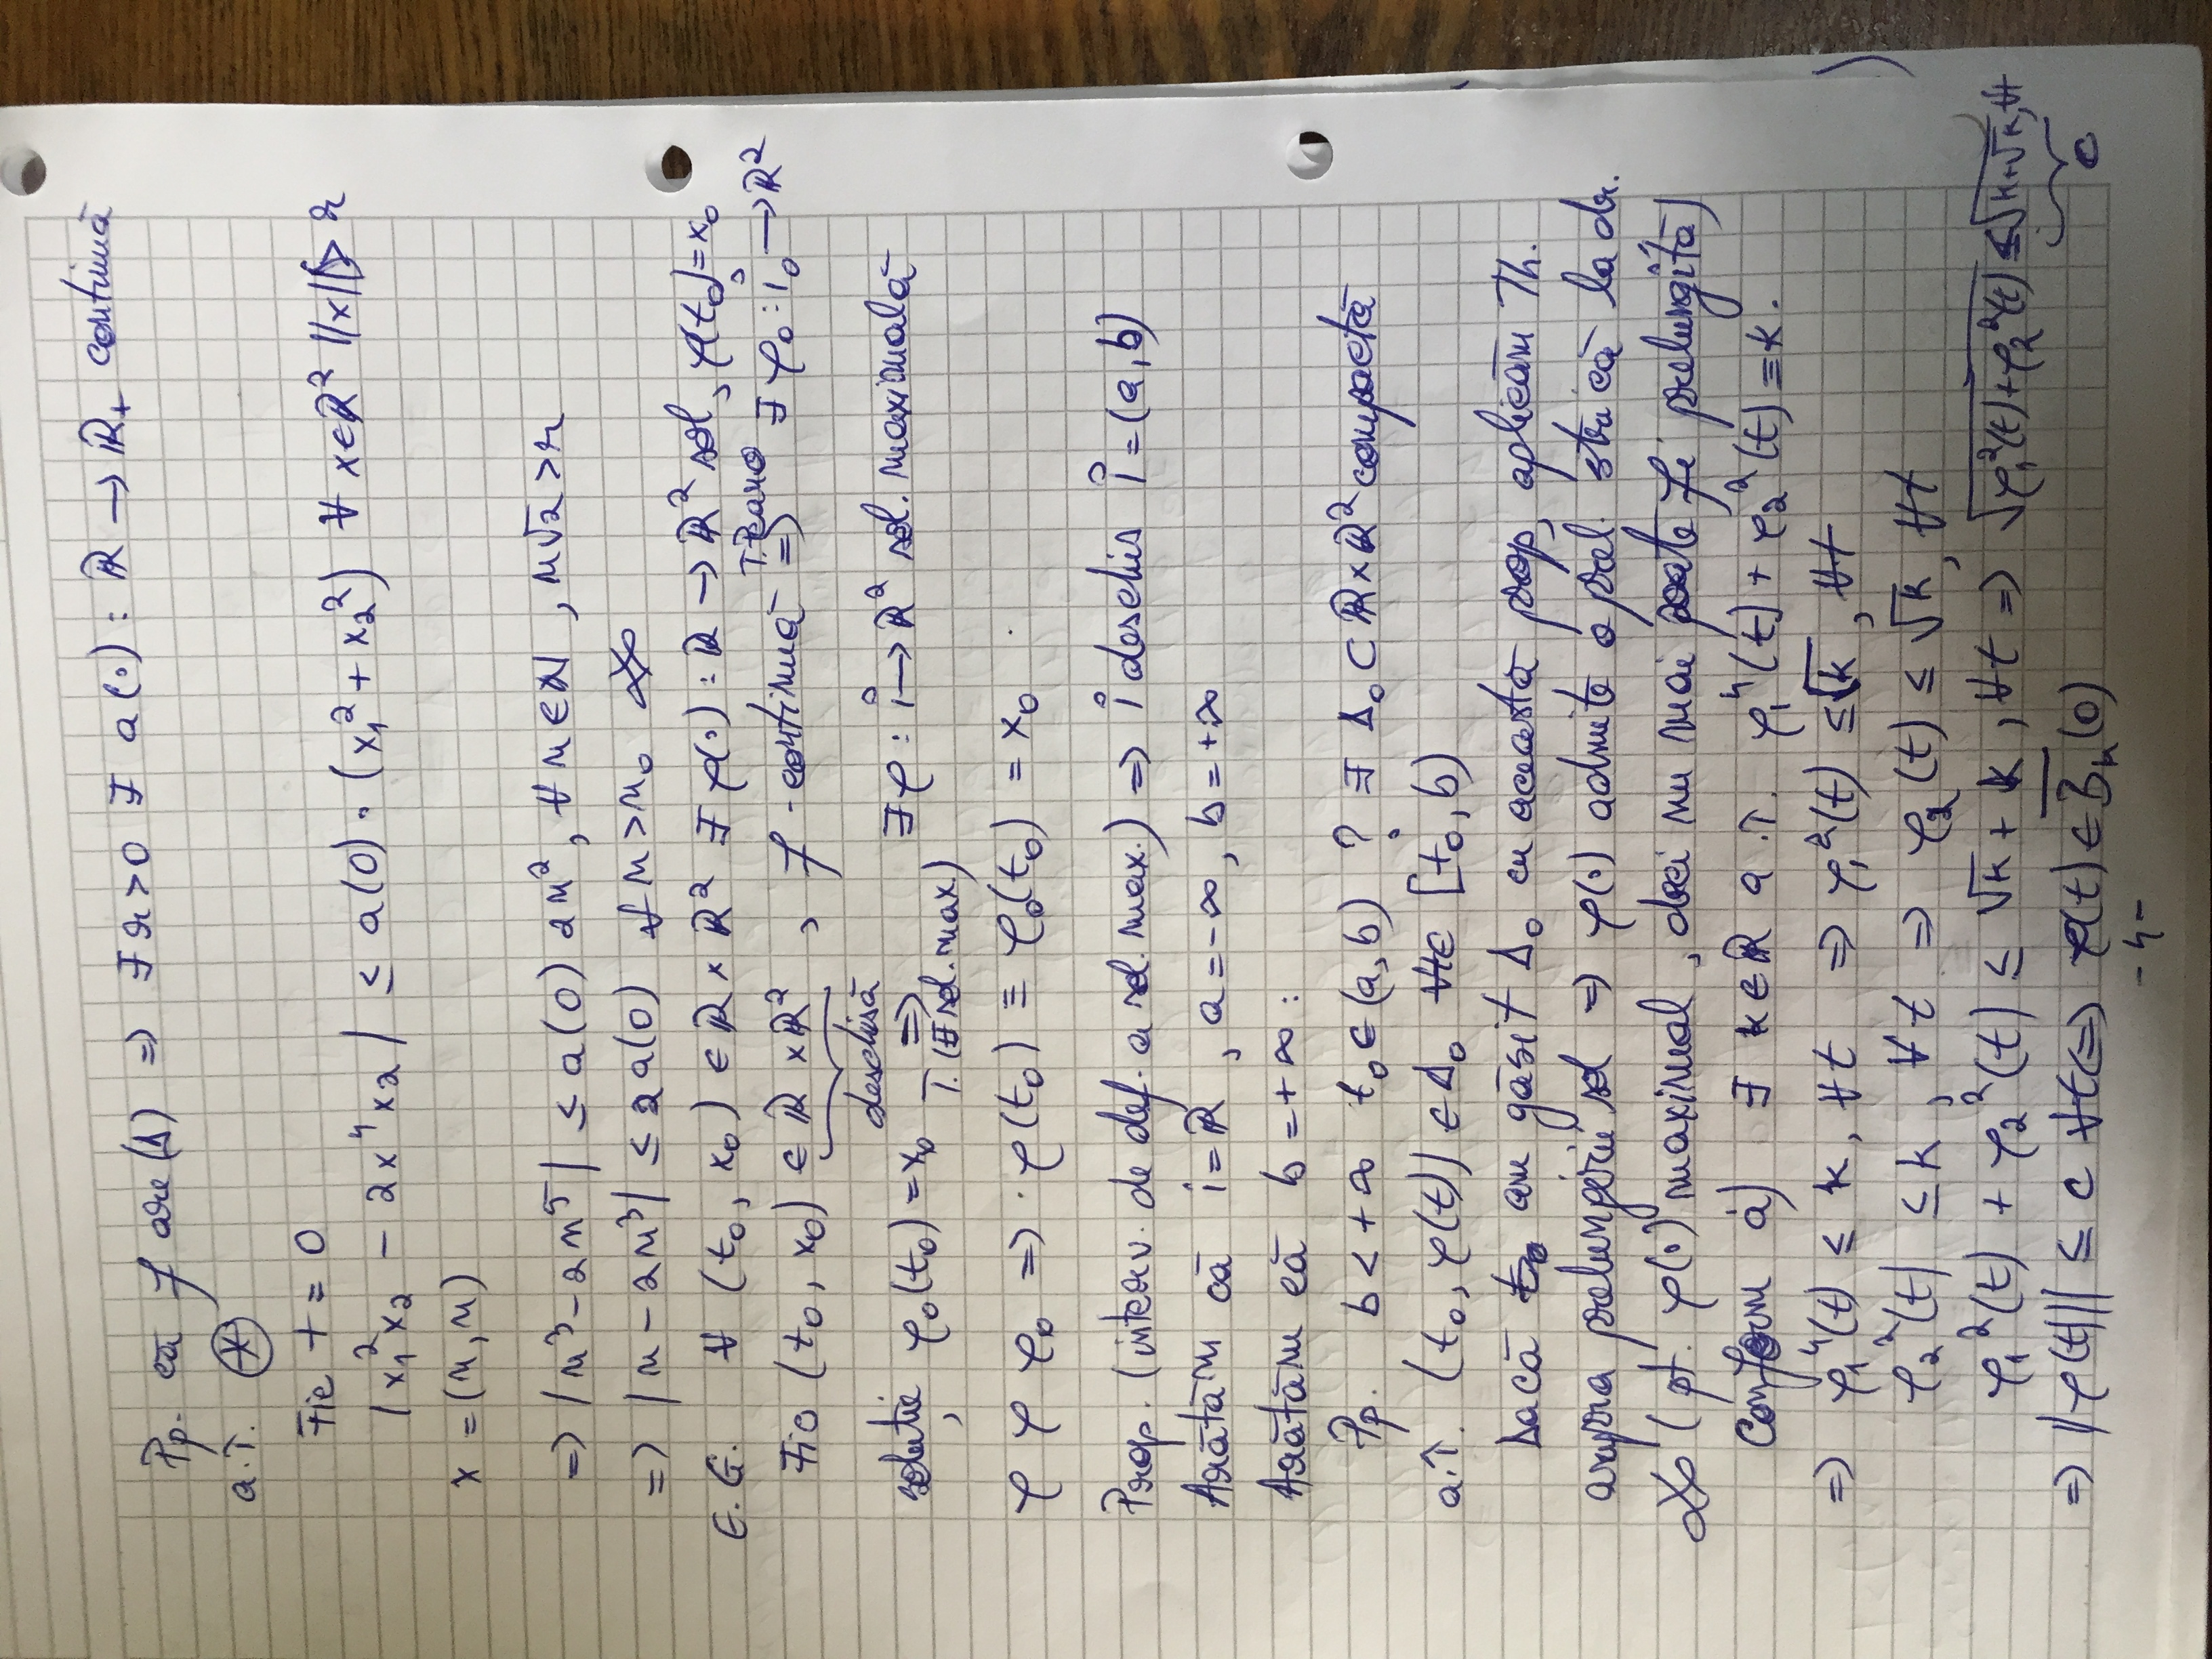 Pp. că f are (Δ) => ∃ r>0 ∃ a(·) : ℝ → ℝ₊ continuă
a.î. ⊛
Fie t = 0
|x₁²x₂ - 2x⁴x₂| ≤ a(0)·(x₁² + x₂²) ∀ x∈ℝ² ||x||> r
x = (n, n)
=> |n³-2n⁵| ≤ a(0) 2n², ∀ n ∈ ℕ, n√2 > r
=> |n - 2n³| ≤ 2a(0) ∀ n > n₀
E.G. ∀ (t₀, x₀) ∈ ℝ × ℝ² ∃ φ(·) : ℝ → ℝ² sol, φ(t₀)=x₀
Fie (t₀, x₀) ∈ ℝ × ℝ², f - continuă T.Peano => ∃ φ₀ : i₀ → ℝ²
deschisă
soluție, φ₀(t₀) = x₀ => T. (∃ sol. max.) ∃ φ : i → ℝ² sol. maximală
φ φ φ₀ => φ(t₀) ≡ φ₀(t₀) = x₀
Prop. (interv. de def. a sol. max.) => i deschis i = (a, b)
Arătăm că i = ℝ, a = -∞, b = +∞
Arătăm că b = +∞ :
Pp. b < +∞ t₀ ∈ (a, b) ? ∃ Δ₀ ⊂ ℝ×ℝ² compactă
a.î. (t₀, φ(t)) ∈ Δ₀ ∀t∈ [t₀, b)
Dacă am găsit Δ₀ cu această prop, aplicăm Th.
asupra prelungirii sol => φ(·) admite o prel. strică la dr.
(pt. φ(·) maximal, deci nu mai poate fi prelungită)
Conform a) ∃ k∈ℝ a.î. φ₁⁴(t) + φ₂²(t) ≡ k.
=> φ₁⁴(t) ≤ k, ∀t => φ₁²(t) ≤ √k, ∀t
φ₂²(t) ≤ k, ∀t => φ₂(t) ≤ √k, ∀t
φ₁²(t) + φ₂²(t) ≤ √k + k, ∀t => √(φ₁²(t)+φ₂²(t)) ≤ √(k+√k), ∀t
=> ||φ(t)|| ≤ c ∀t <=> φ(t) ∈ B̄ₖ(0) c
-4-